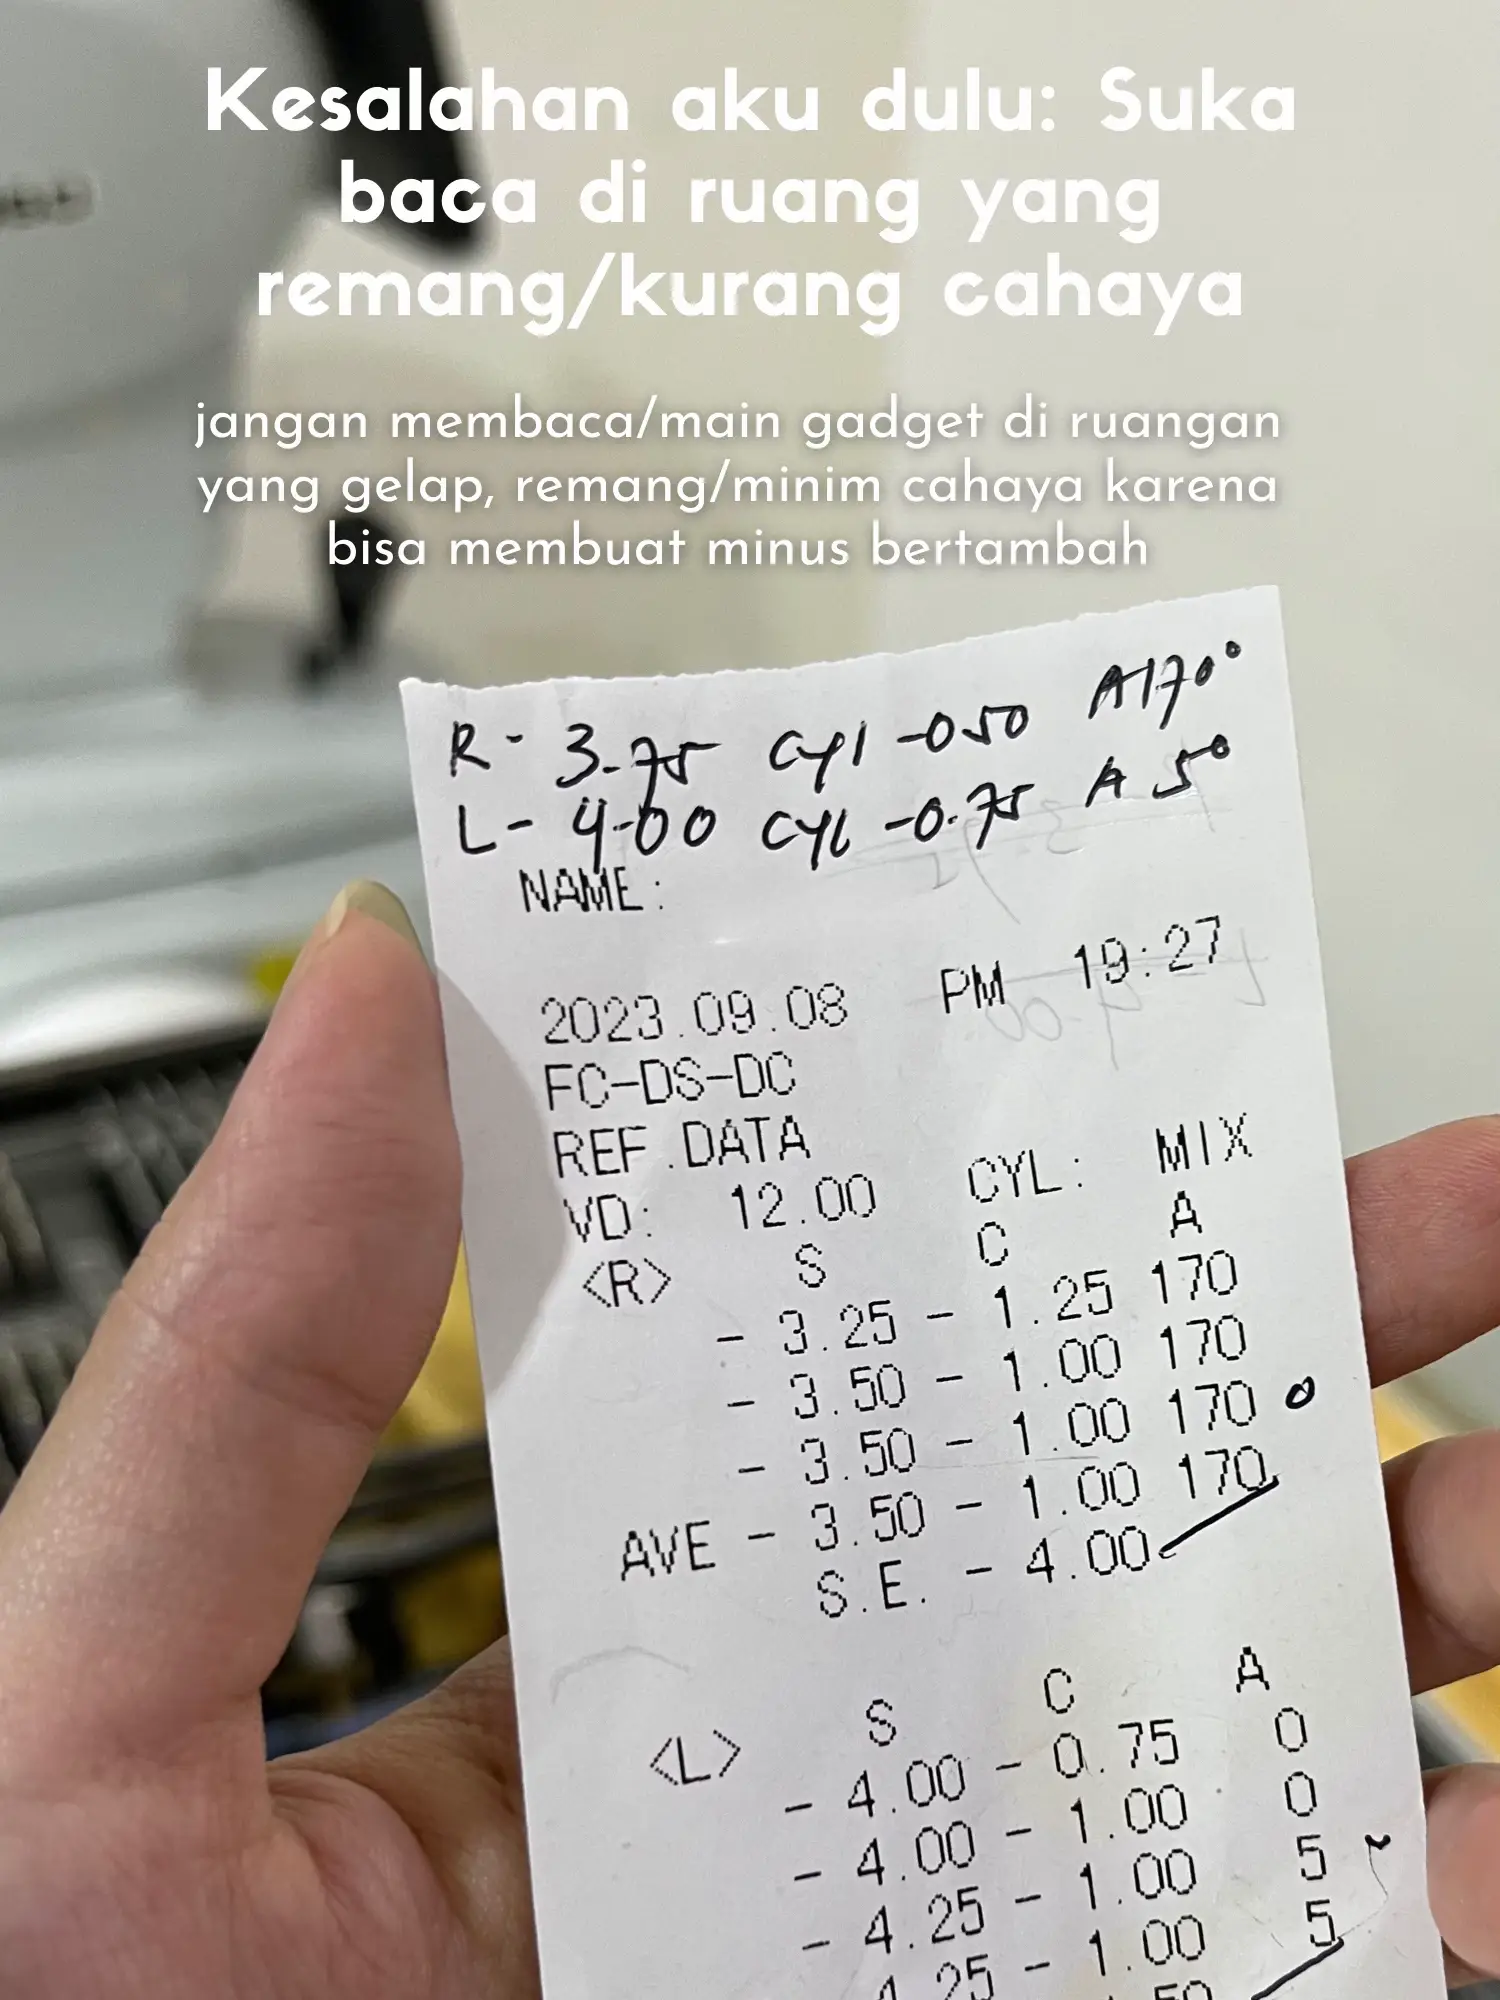 Kesalahan aku dulu: Suka
baca di ruang yang
remang/kurang cahaya
jangan membaca/main gadget di ruangan
yang gelap, remang/minim cahaya karena
bisa membuat minus bertambah
R - 3.75 Cyl -0.50 A 170°
L - 4.00 Cyl -0.75 A 5°
NAME:
2023.09.08 PM 19:27
FC-DS-DC
REF.DATA
VD: 12.00 CYL: MIX
<R> S C A
- 3.25 - 1.25 170
- 3.50 - 1.00 170
- 3.50 - 1.00 170
AVE - 3.50 - 1.00 170
S.E. - 4.00
<L> S C A
- 4.00 - 0.75 0
- 4.00 - 1.00 0
- 4.25 - 1.00 5
4.25 - 1.00 5